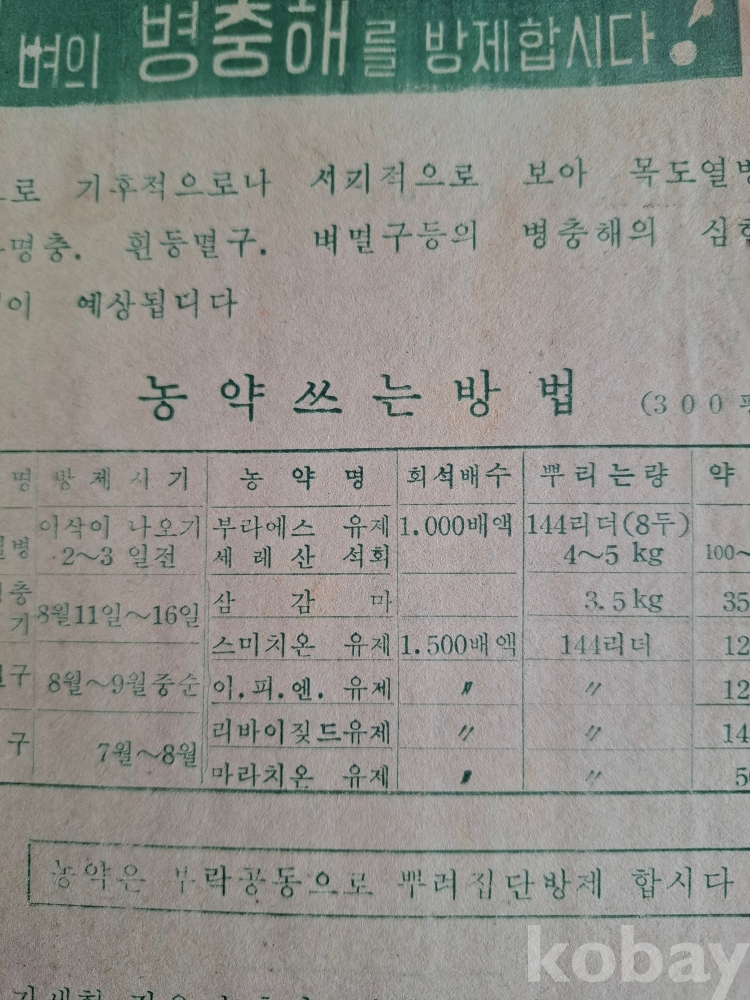 벼의 병충해를 방제합시다!
으로 기후적으로나 서기적으로 보아 목도열병
명충. 흰등멸구. 벼멸구등의 병충해의 심한
이 예상됩니다
농약쓰는방법 (300평
명 방제시기 농약명 희석배수 뿌리는량 약
병 이삭이 나오기 2~3 일전 부라에스 유제 1.000배액 144리더(8두)
세레산 석회 4~5 kg 100~
충기 8월11일~16일 삼감마 3.5kg 35
스미치온 유제 1.500배액 144리더 12
구 8월~9월중순 이.피.엔. 유제 〃 〃 12
구 7월~8월 리바이짓드유제 〃 〃 14
마라치온 유제 〃 〃 50
농약은 부락공동으로 뿌려집단방제 합시다
kobay